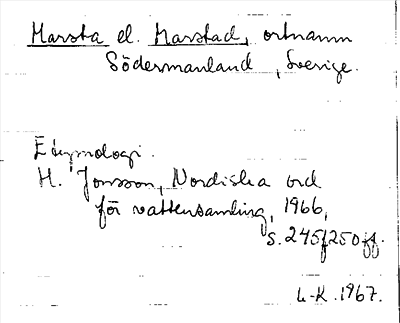 Marsta el. Marstad, ortnamn
Södermanland, Sverige.
Etymologi.
H. Jonsson, Nordiska ord
för vattensamling, 1966,
s. 245f 250 ff.
L-K. 1967.